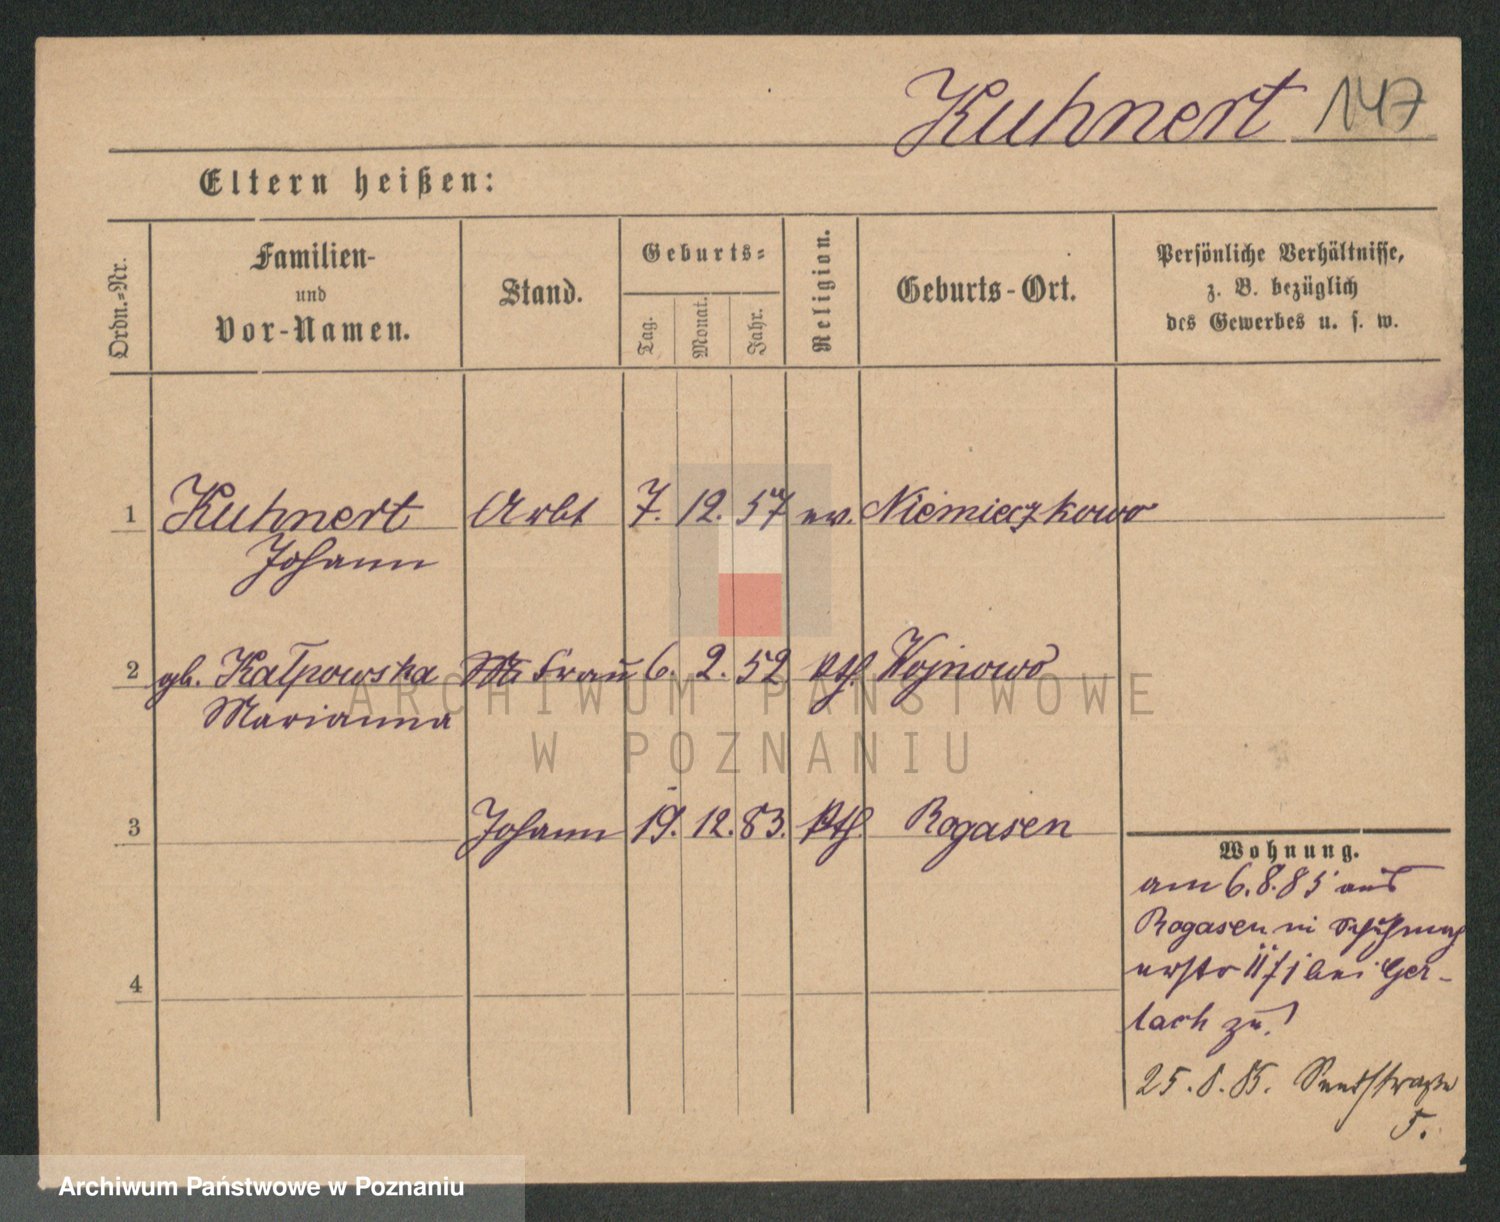 Kuhnert 147
Eltern heißen:
Ordn.-Nr.
Familien-
und
Vor-Namen.
Stand.
Geburts-
Tag.
Monat.
Jahr.
Religion.
Geburts-Ort.
Persönliche Verhältnisse,
z. B. bezüglich
des Gewerbes u. s. w.
1 Kuhnert Arbt 7. 12. 57 ev. Niemieczkowo
Johann
2 gb. Frau 6. 2. 52 kth. Wojnowo
Marianna
3 Johann 19. 12. 83. kth. Rogasen
4
Wohnung.
am 6.8.85 aus
Rogasen in
bei Ger-
lach zu.
25. 8. 85.
5.
ARCHIWUM PAŃSTWOWE
W POZNANIU
Archiwum Państwowe w Poznaniu